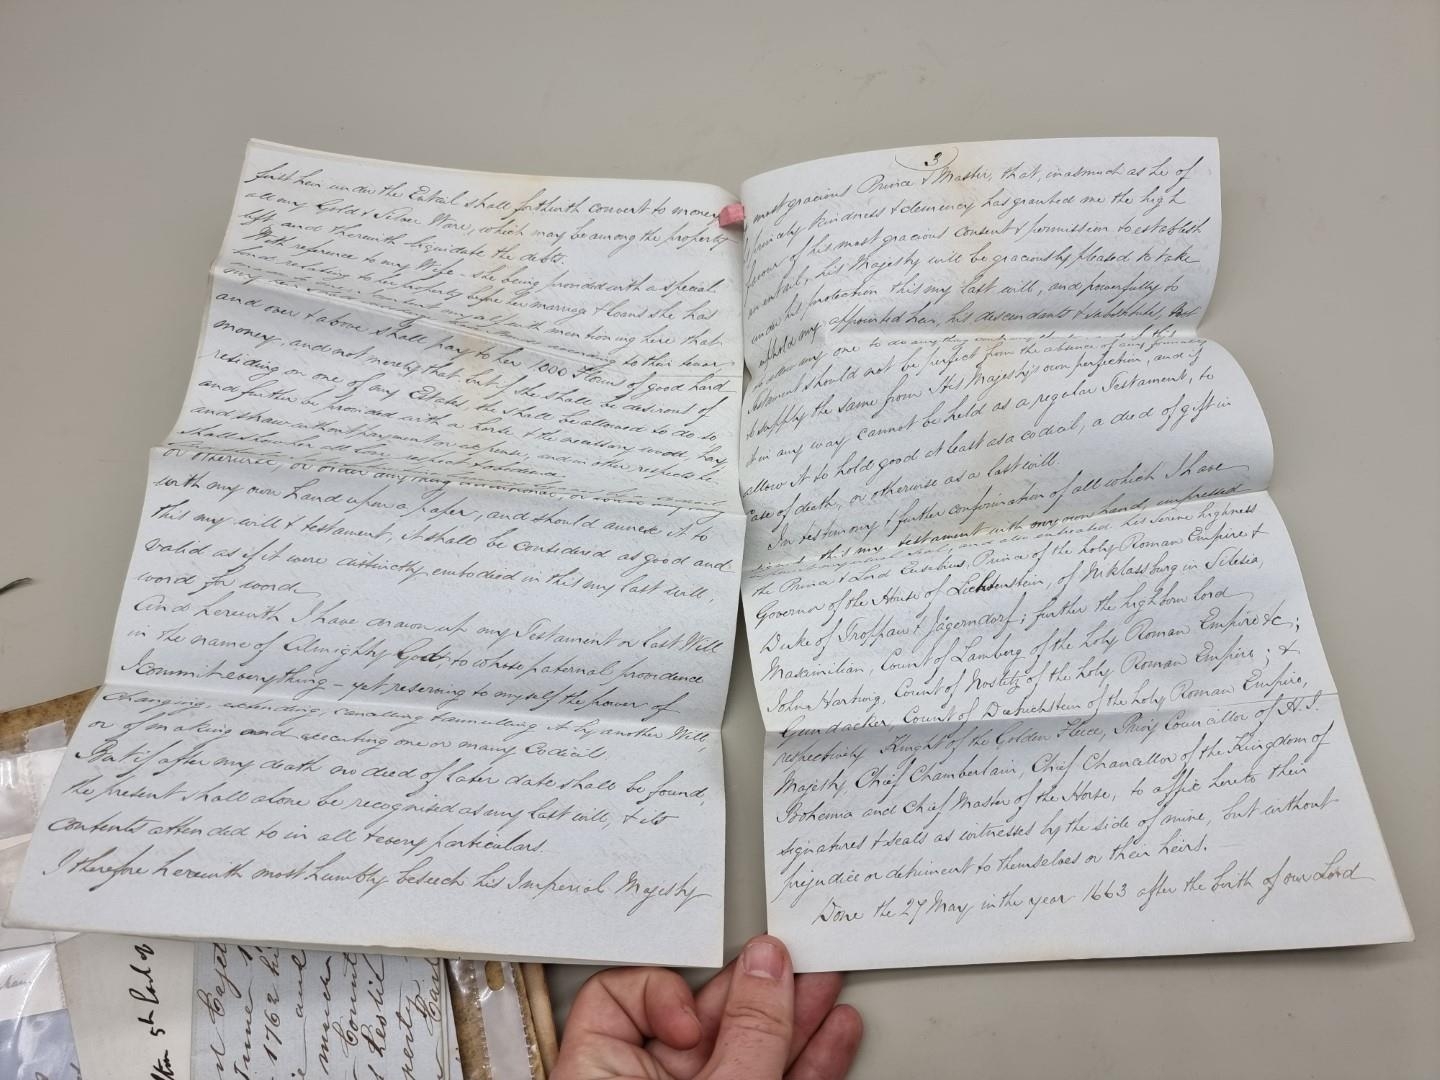 first heir under the Entail shall forthwith convert to money
all my Gold & Silver Ware, which may be among the property
left, and therewith liquidate the debts.
With reference to my Wife – she being provided with a special
relating to her property before her marriage & loans she has
mentioning here that
according to their tenor,
and over & above shall pay to her 1,000 Florins of good hard
money, and not merely that, but if she shall be desirous of
residing on one of my Estates, she shall be allowed to do so
and further be provided with a horse & the necessary wood, hay,
and straw without payment or expense, and in other respects he
shall show her all love, respect &
or otherwise, or order anything additional, or
with my own hand upon a paper, and should annex it to
this my will & testament, it shall be considered as good and
valid as if it were distinctly embodied in this my last will,
word for word.
And herewith I have drawn up my Testament or Last Will
in the name of Almighty God to whose paternal providence
I commit everything – yet reserving to myself the power of
changing, extending, cancelling & annulling it by another Will,
or of making and executing one or many Codicils.
But if after my death no deed of later date shall be found,
the present shall alone be recognised as my last will, & its
contents attended to in all & every particulars.
I therefore herewith most humbly beseech his Imperial Majesty
3
most gracious Prince & Master, that, inasmuch as he of
princely kindness & clemency has granted me the high
favour of his most gracious consent & permission to establish
an entail, his Majesty will be graciously pleased to take
under his protection this my last will, and powerfully to
uphold my appointed heir, his descendants & substitutes, not
to allow any one to do anything contrary
testament should not be perfect from the absence of any formality
to supply the same from His Majesty's own perfection, and if
it in any way cannot be held as a regular Testament, to
allow it to hold good at least as a codicil, a deed of gift in
case of death, or otherwise as a last will.
In testimony & further confirmation of all which I have
signed this my testament with my own hand, impressed
and also entreated his Serene highness
the Prince & Lord Eusebius, Prince of the holy Roman Empire &
Governor of the House of Lichtenstein, of Niklassburg in Silesia,
Duke of Troppau & Jägerndorf; further the highborn lord
Maximilian, Count of Lamberg of the Holy Roman Empire &c;
John Hartwig, Count of Nostitz of the holy Roman Empire; &
Gundacker, Count of Dietrichstein of the holy Roman Empire,
respectively Knights of the Golden Fleece, Privy Councillor of H. I.
Majesty, Chief Chamberlain, Chief Chancellor of the Kingdom of
Bohemia and Chief Master of the Horse, to affix hereto their
signatures & seals as witnesses by the side of mine, but without
prejudice or detriment to themselves or their heirs.
Done the 27 May in the year 1663 after the birth of our Lord
5th Earl of
June
1762
and
Count
Leslie